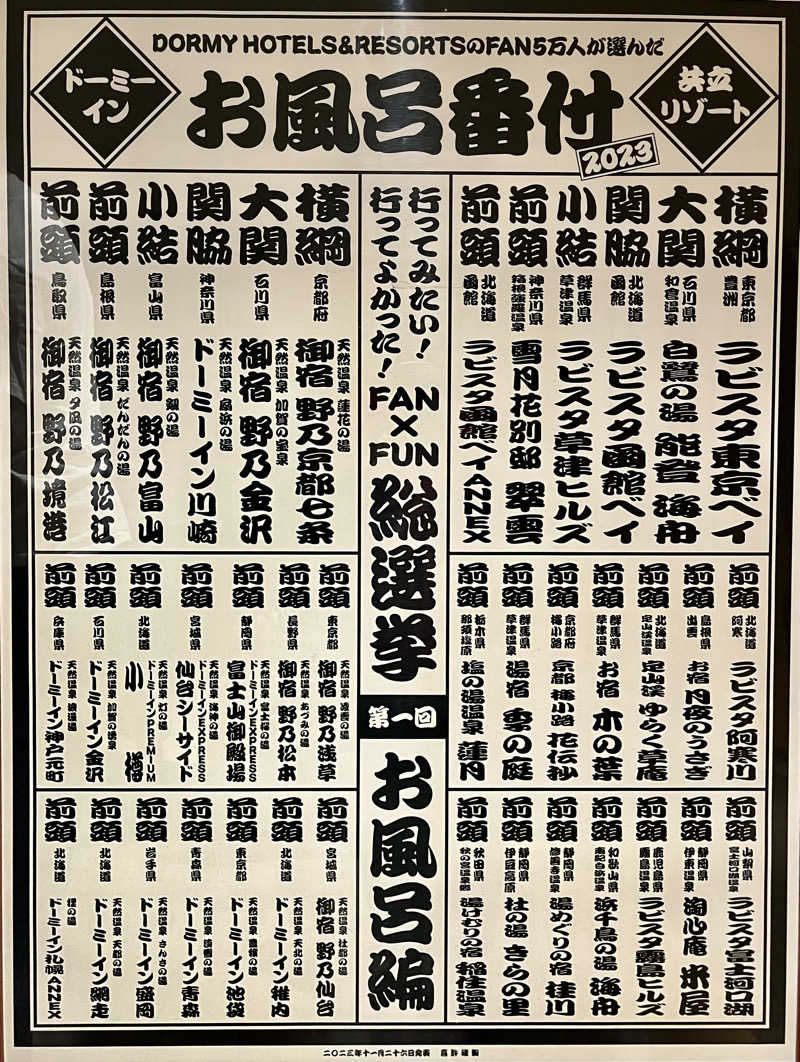 DORMY HOTELS&RESORTSのFAN5万人が選んだ
ドーミーイン
お風呂番付
2023
共立リゾート
横綱 東京都 豊洲 ラビスタ東京ベイ
大関 石川県 和倉温泉 白鷺の湯 能登 海舟
関脇 北海道 函館 ラビスタ函館ベイ
小結 群馬県 草津温泉 ラビスタ草津ヒルズ
前頭 神奈川県 箱根強羅温泉 雪月花別邸 翠雲
前頭 北海道 函館 ラビスタ函館ベイANNEX
前頭 北海道 阿寒 ラビスタ阿寒川
前頭 島根県 出雲 お宿 月夜のうさぎ
前頭 北海道 定山渓温泉 定山渓 ゆらく草庵
前頭 群馬県 草津温泉 お宿 木の葉
前頭 京都府 梅小路 京都 梅小路 花伝抄
前頭 群馬県 草津温泉 湯宿 季の庭
前頭 栃木県 那須塩原 塩の湯温泉 蓮月
前頭 山梨県 富士河口湖温泉 ラビスタ富士河口湖
前頭 静岡県 伊東温泉 淘心庵 米屋
前頭 鹿児島県 霧島温泉 ラビスタ霧島ヒルズ
前頭 和歌山県 南紀白浜温泉 浜千鳥の湯 海舟
前頭 静岡県 修善寺温泉 湯めぐりの宿 桂川
前頭 静岡県 伊豆高原 杜の湯 きらの里
前頭 秋田県 秋の宮温泉郷 湯けむりの宿 稲住温泉
行ってみたい!
行ってよかった!
FAN×FUN
総選挙
第一回
お風呂編
横綱 京都府 天然温泉 蓮花の湯 御宿 野乃京都七条
大関 石川県 天然温泉 加賀の宝泉 御宿 野乃金沢
関脇 神奈川県 天然温泉 扇浜の湯 ドーミーイン川崎
小結 富山県 天然温泉 剱の湯 御宿 野乃富山
前頭 島根県 天然温泉 だんだんの湯 御宿 野乃松江
前頭 鳥取県 天然温泉 夕凪の湯 御宿 野乃境港
前頭 東京都 天然温泉 凌雲の湯 御宿 野乃浅草
前頭 長野県 天然温泉 あづみの湯 御宿 野乃松本
前頭 静岡県 天然温泉 富士桜の湯 ドーミーインEXPRESS 富士山御殿場
前頭 宮城県 天然温泉 海神の湯 ドーミーインEXPRESS 仙台シーサイド
前頭 北海道 天然温泉 灯の湯 ドーミーインPREMIUM 小樽
前頭 石川県 天然温泉 加賀の湧泉 ドーミーイン金沢
前頭 兵庫県 天然温泉 浪漫湯 ドーミーイン神戸元町
前頭 宮城県 天然温泉 杜都の湯 御宿 野乃仙台
前頭 北海道 天然温泉 天北の湯 ドーミーイン稚内
前頭 東京都 天然温泉 豊穣の湯 ドーミーイン池袋
前頭 青森県 天然温泉 淡雪の湯 ドーミーイン青森
前頭 岩手県 天然温泉 さんさの湯 ドーミーイン盛岡
前頭 北海道 天然温泉 天都の湯 ドーミーイン網走
前頭 北海道 狸の湯 ドーミーイン札幌ANNEX
二〇二三年十一月二十六日発表 蒙許禁制